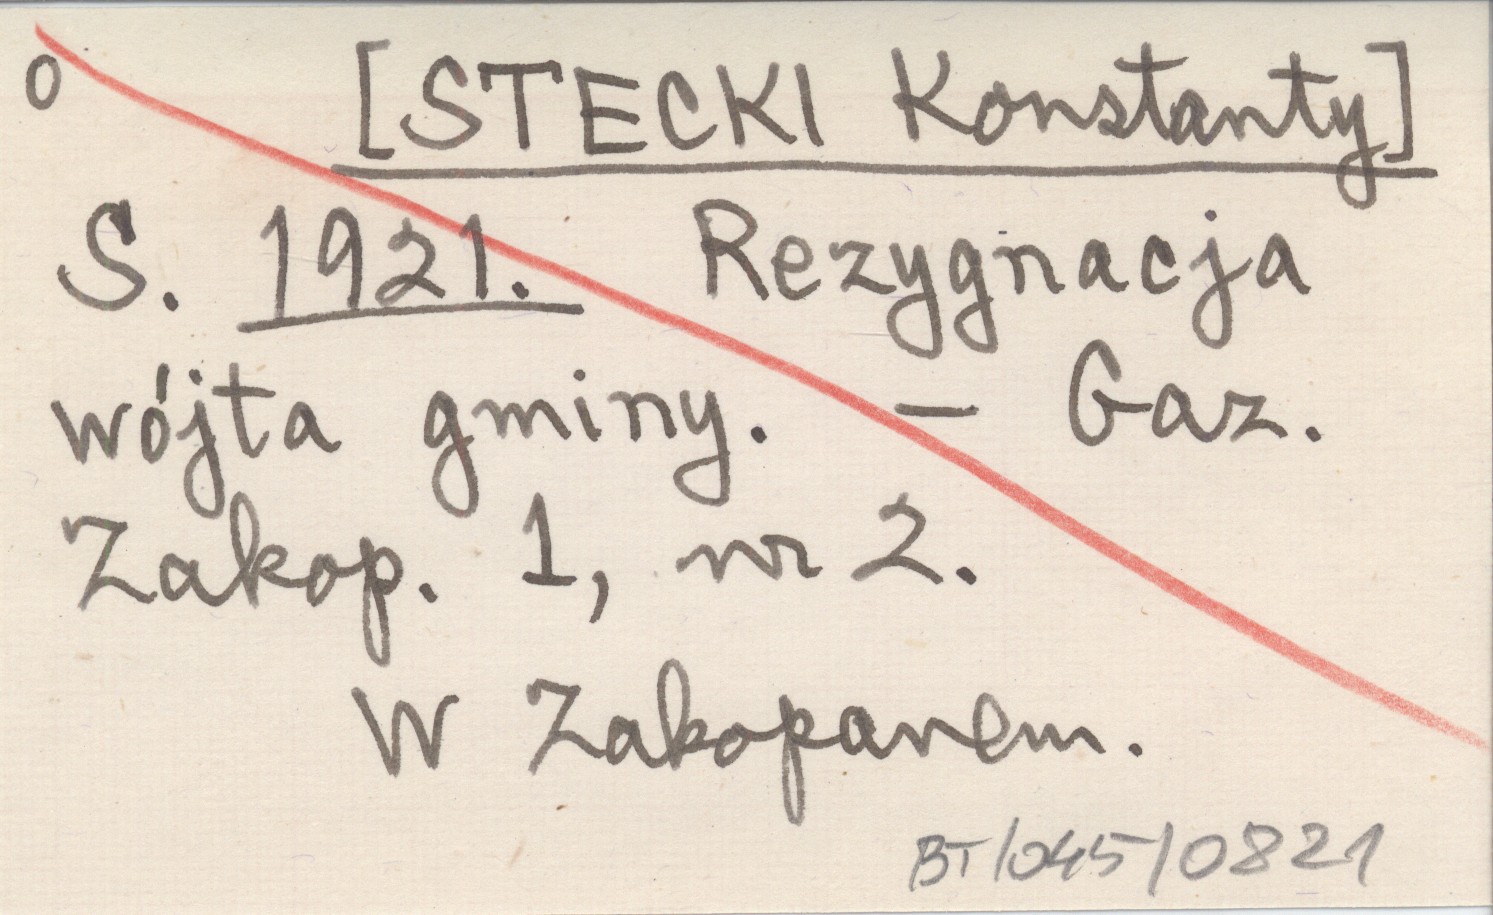 o [STECKI Konstanty]
S. 1921. Rezygnacja
wójta gminy. — Gaz.
Zakop. 1, nr 2.
W Zakopanem.
BT/045/0821